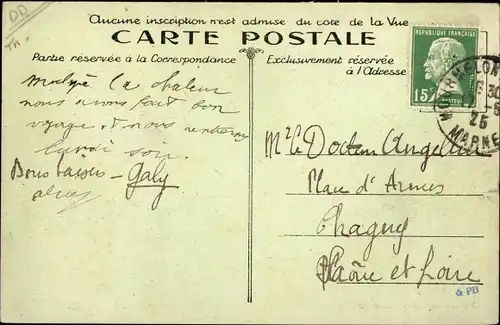 DD
Aucune inscription n'est admise du côté de la Vue
CARTE POSTALE
Partie réservée à la Correspondance
Exclusivement réservée
à l'Adresse
RÉPUBLIQUE FRANÇAISE
15c
PASTEUR
MOURMELON
25
MARNE
Malgré la chaleur
nous avons fait bon
voyage et nous rentrerons
lundi soir.
Bons baisers - Galy
Mr le Docteur
Place d'Armes
Chagny
Saône et Loire
PB